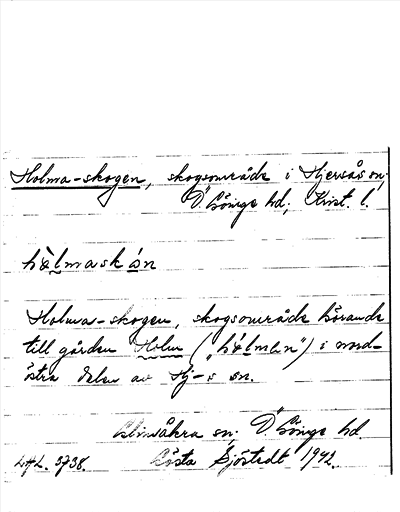 Holma-skogen, skogsområde i Hjersås sn;
Ö. Göinge hd; Krist. l.
hòlmaskón
Holma-skogen, skogsområde hörande
till gården Holm ("hòlman") i nord-
östra delen av Hj-s sn.
Glimåkra sn; Ö Göinge hd.
LAL. 3738. Gösta Sjöstedt 1942.